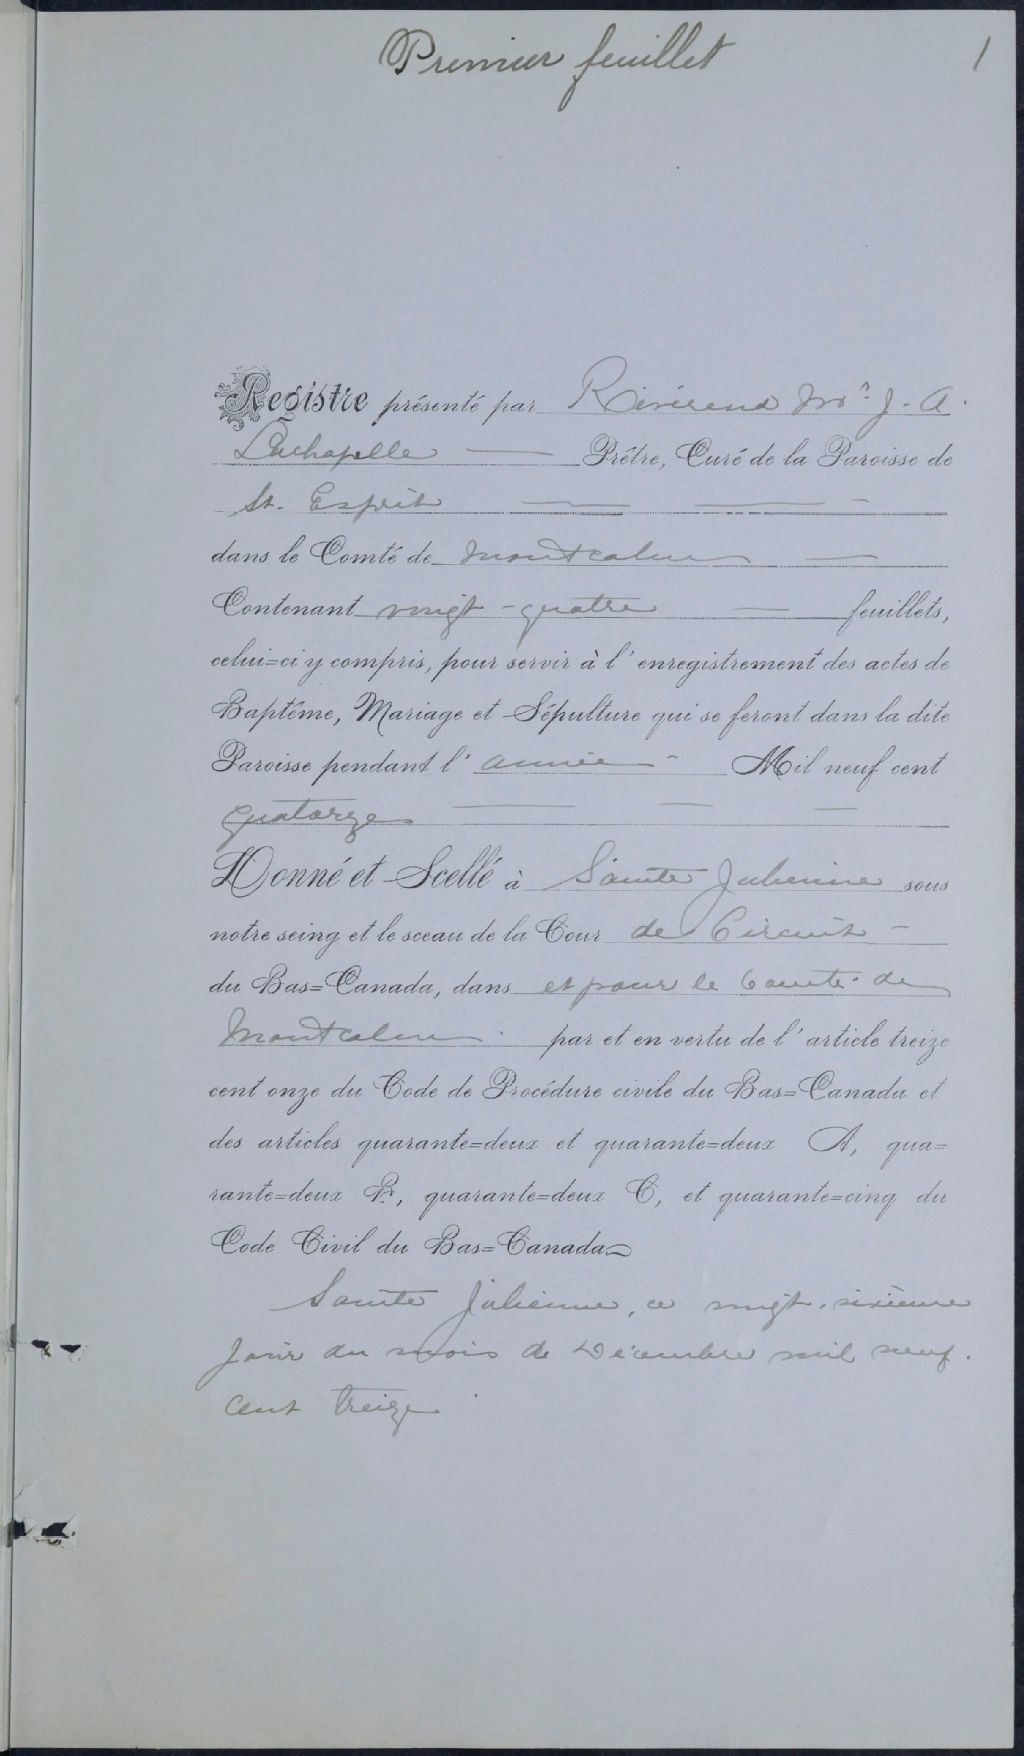 Premier feuillet
1
Registre présenté par Révérend Mr. J. A.
Lachapelle — Prêtre, Curé de la Paroisse de
St. Esprit — —
dans le Comté de Montcalm —
Contenant vingt-quatre — feuillets,
celui=ci y compris, pour servir à l'enregistrement des actes de
Baptême, Mariage et Sépulture qui se feront dans la dite
Paroisse pendant l'année - Mil neuf cent
quatorze — — —
Donné et Scellé à Sainte Julienne sous
notre seing et le sceau de la Cour de Circuit -
du Bas=Canada, dans et pour le Comté de
Montcalm. par et en vertu de l'article treize
cent onze du Code de Procédure civile du Bas=Canada et
des articles quarante=deux et quarante=deux A, qua=
rante=deux B, quarante=deux C, et quarante=cinq du
Code Civil du Bas=Canada
Sainte Julienne, ce vingt-sixième
jour du mois de Décembre mil neuf.
cent treize